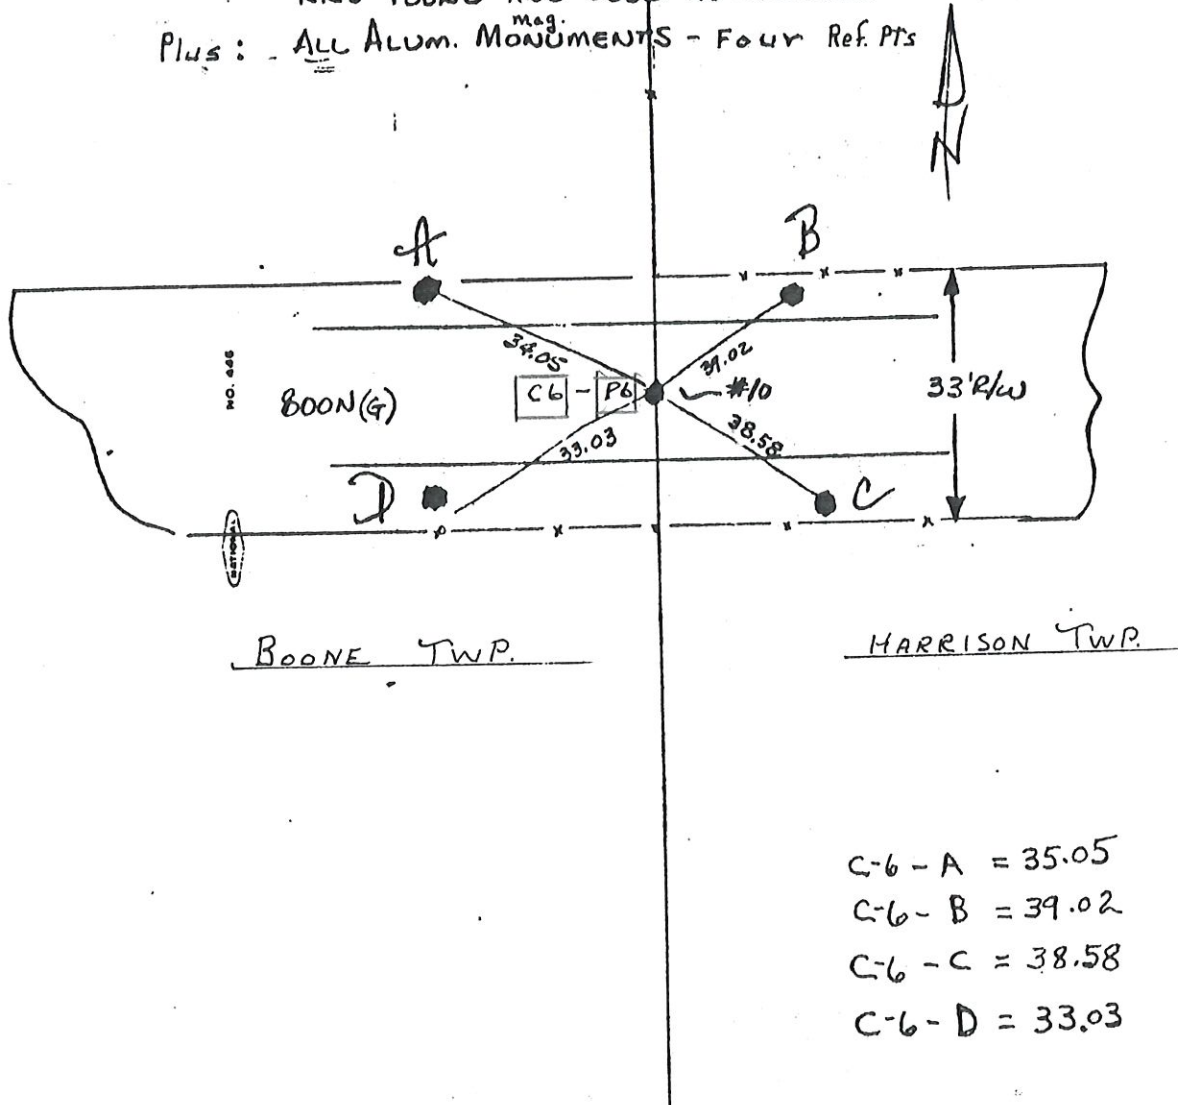 Plus: ALL ALUM. MONUMENTS - Four Ref. Pts
mag.
N
A
B
34.05
39.02
NO. 446
BOON(G)
C6 - P6
#10
33'R/W
33.03
38.58
D
C
NATIONAL
BOONE TWP.
HARRISON TWP.
C-6 - A = 35.05
C-6 - B = 39.02
C-6 - C = 38.58
C-6 - D = 33.03